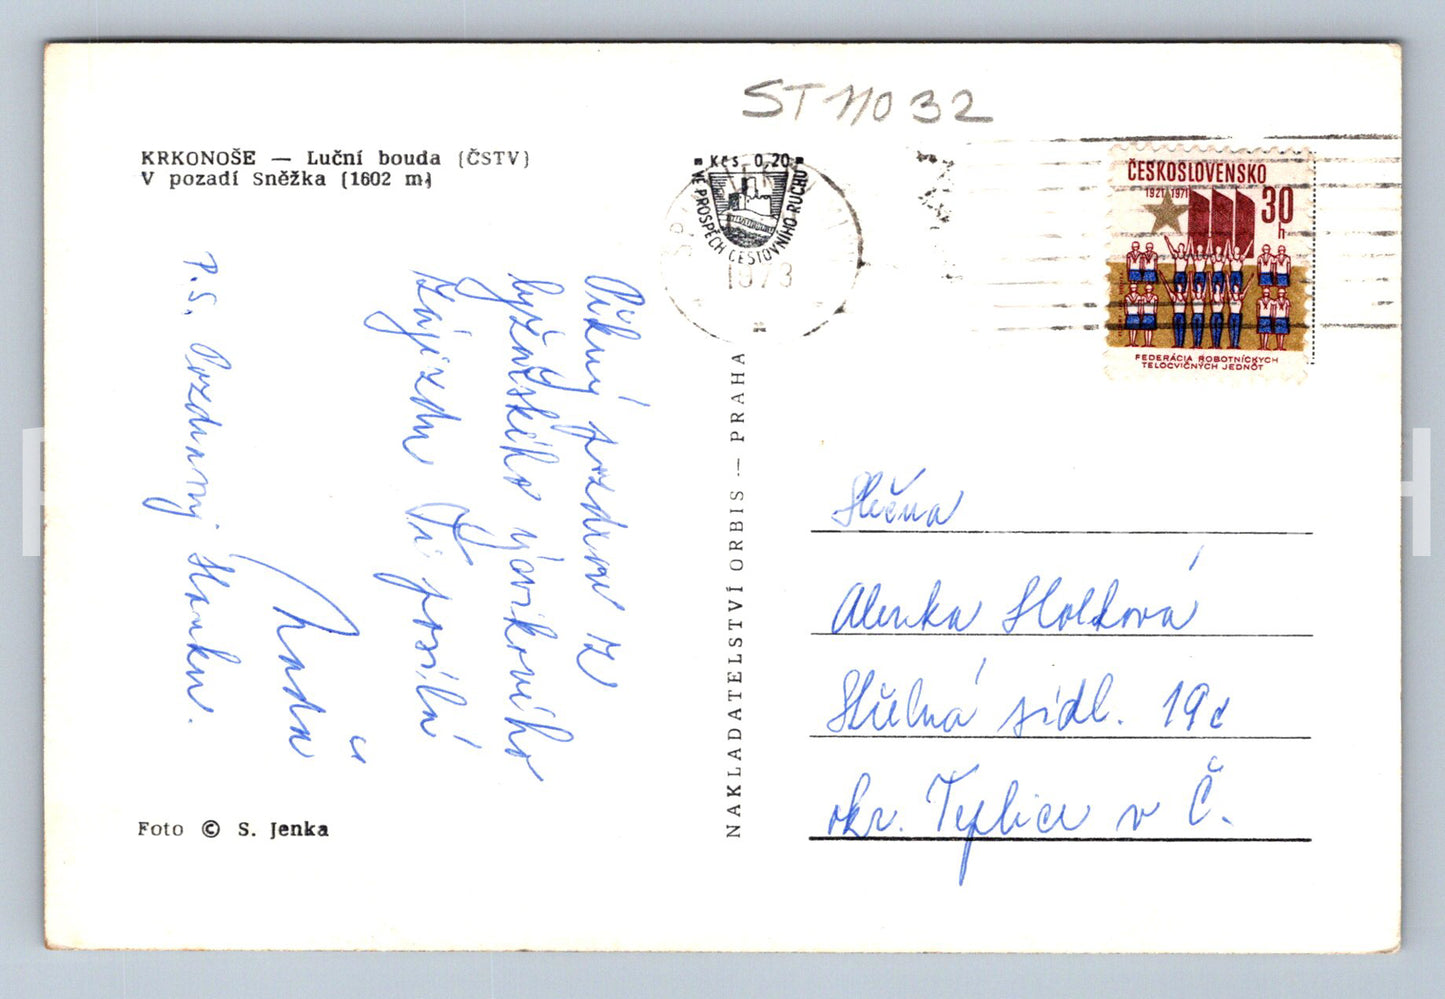 ST11032
KRKONOŠE — Luční bouda (ČSTV)
V pozadí Sněžka (1602 m)
Kčs 0,20
VE PROSPĚCH CESTOVNÍHO RUCHU
1973
ČESKOSLOVENSKO
1921 1971
30
h
FEDERÁCIA ROBOTNÍCKYCH
TELOCVIČNÝCH JEDNÔT
Pěkný pozdrav z
lyžařského výcvikového
zájezdu Ti posílá
Naďa
P.S. Pozdravuj Hanku.
NAKLADATELSTVÍ ORBIS — PRAHA
Slečna
Alenka Holková
Střelná sídl. 19c
okr. Teplice v Č.
Foto © S. Jenka